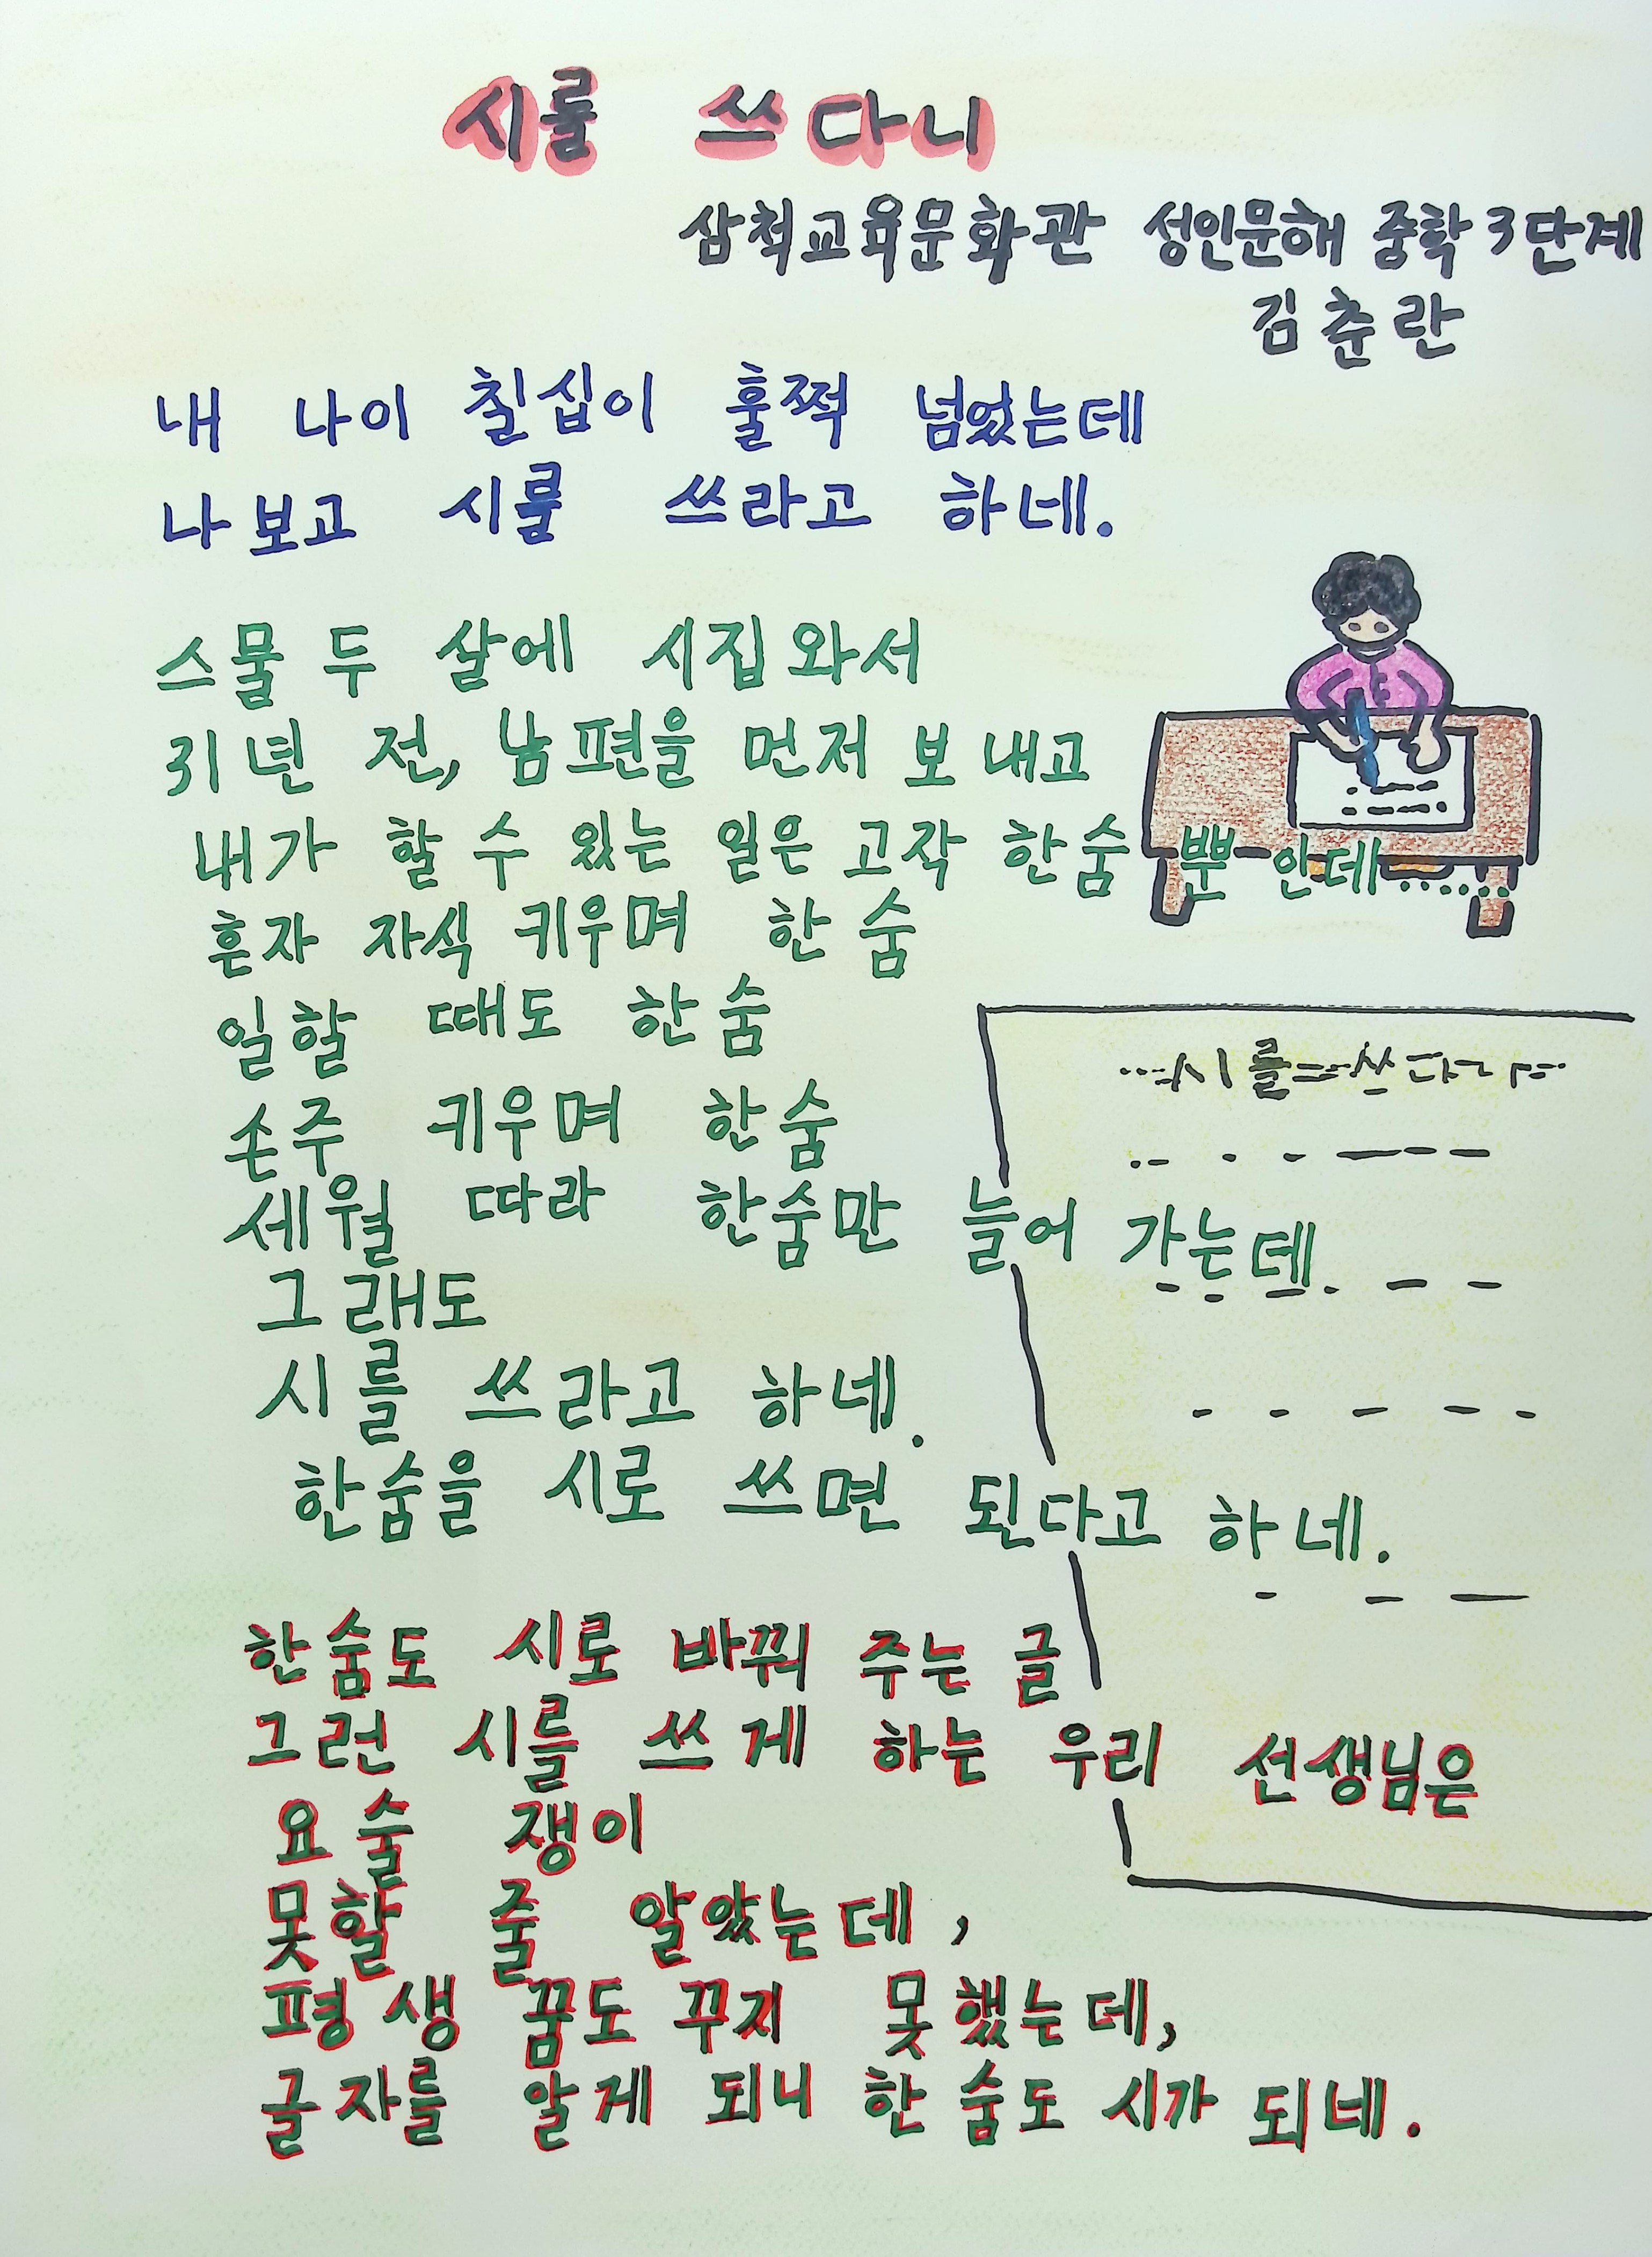 시를 쓰다니
삼척교육문화관 성인문해 중학 3단계
김춘란
내 나이 칠십이 훌쩍 넘었는데
나보고 시를 쓰라고 하네.
스물 두 살에 시집와서
31년 전, 남편을 먼저 보내고
내가 할 수 있는 일은 고작 한숨 뿐인데......
혼자 자식 키우며 한숨
일할 때도 한숨
손주 키우며 한숨
세월 따라 한숨만 늘어 가는데.
그래도
시를 쓰라고 하네.
한숨을 시로 쓰면 된다고 하네.
한숨도 시로 바꿔 주는 글
그런 시를 쓰게 하는 우리 선생님은
요술쟁이
못할 줄 알았는데,
평생 꿈도 꾸지 못했는데,
글자를 알게 되니 한숨도 시가 되네.
시를 쓰다니